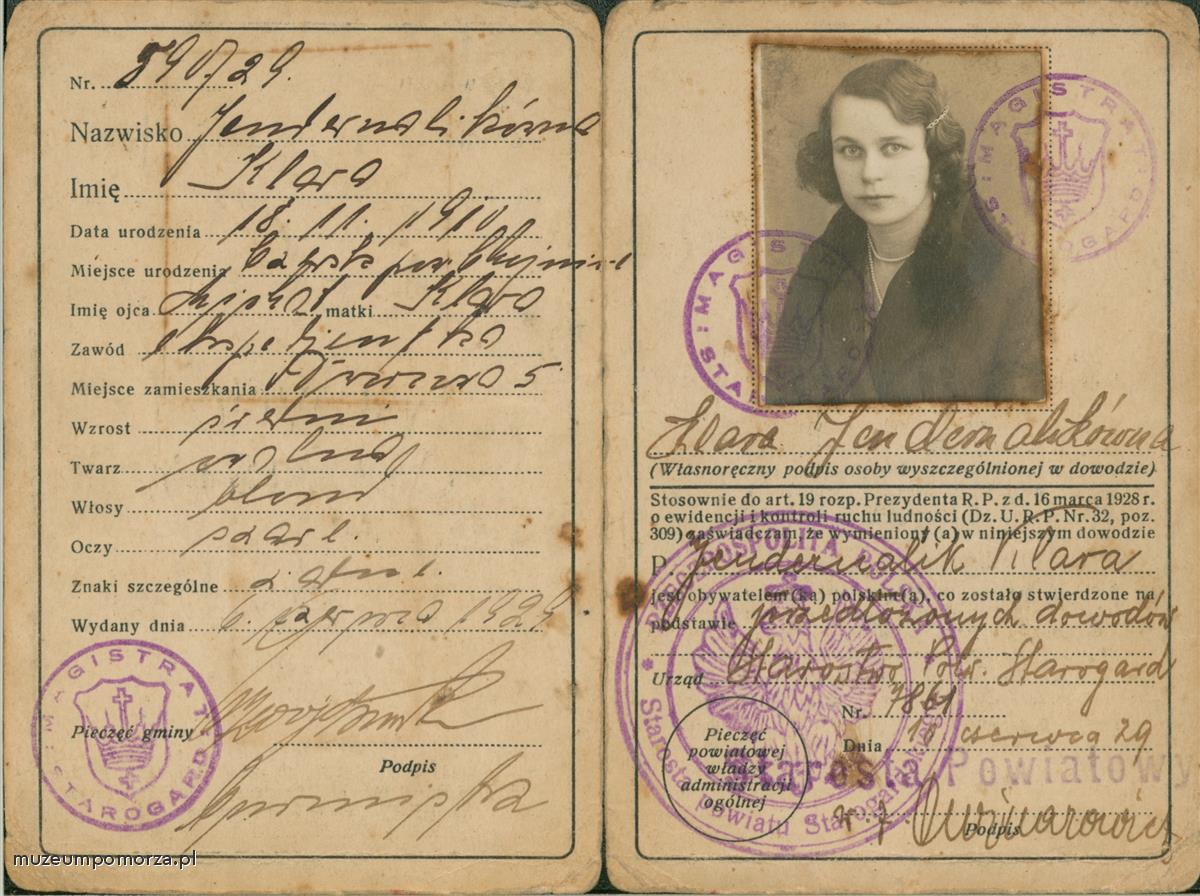 Nr. 590/29.
Nazwisko Jendernalikówna
Imię Klara
Data urodzenia 18. 11. 1910
Miejsce urodzenia Czersk pow. Chojnice
Imię ojca Michał matki Klara
Zawód ekspedjentka
Miejsce zamieszkania 5
Wzrost średni
Twarz
Włosy blond
Oczy
Znaki szczególne
Wydany dnia 6. czerwca 1929
MAGISTRAT STAROGARD
Pieczęć gminy
Podpis
Burmistrz
MAGISTRAT STAROGARD
MAGISTRAT STAROGARD
Klara Jendernalikówna
(Własnoręczny podpis osoby wyszczególnionej w dowodzie)
Stosownie do art. 19 rozp. Prezydenta R. P. z d. 16 marca 1928 r.
o ewidencji i kontroli ruchu ludności (Dz. U. R. P. Nr. 32, poz.
309) zaświadczam, że wymieniony (a) w niniejszym dowodzie
P. Jendernalik Klara
jest obywatelem (ką) polskim (ą), co zostało stwierdzone na
podstawie przedłożonych dowodów
Urząd Starostwo Pow. Starogard
Nr. 7861
Dnia czerwca 29
RZECZPOSPOLITA POLSKA
Starosta powiatu Starogardzkiego
Pieczęć
powiatowej
władzy
administracji
ogólnej
Starosta Powiatowy
Podpis
muzeumpomorza.pl